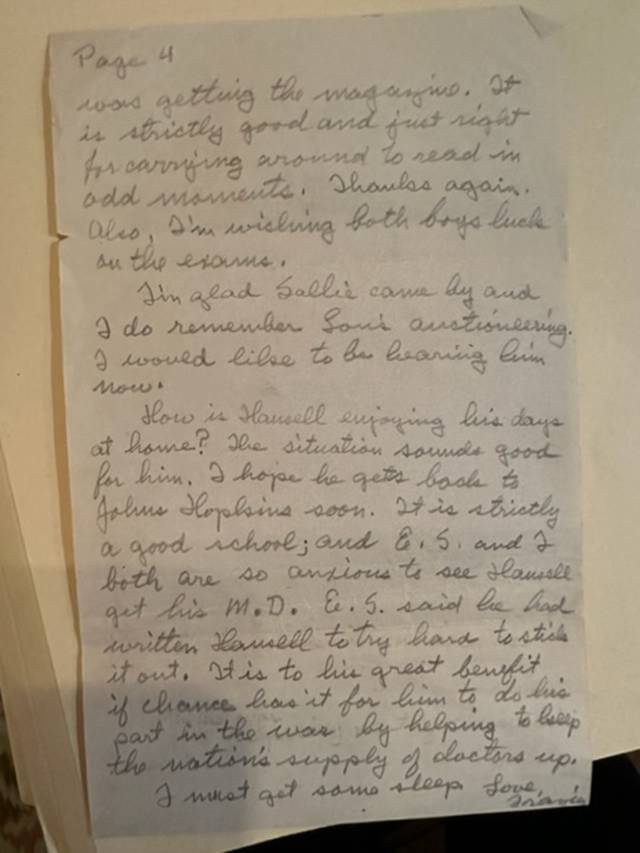 Page 4
was getting the magazine. It
is strictly good and just right
for carrying around to read in
odd moments. Thanks again.
Also, I'm wishing both boys luck
on the exams.
I'm glad Sallie came by and
I do remember Son's auctioneering.
I would like to be hearing him
now.
How is Hansell enjoying his days
at home? The situation sounds good
for him. I hope he gets back to
Johns Hopkins soon. It is strictly
a good school; and E. S. and I
both are so anxious to see Hansell
get his M.D. E. S. said he had
written Hansell to try hard to stick
it out. It is to his great benefit
if chance has it for him to do his
part in the war by helping to keep
the nation's supply of doctors up.
I must get some sleep Love,
Travis